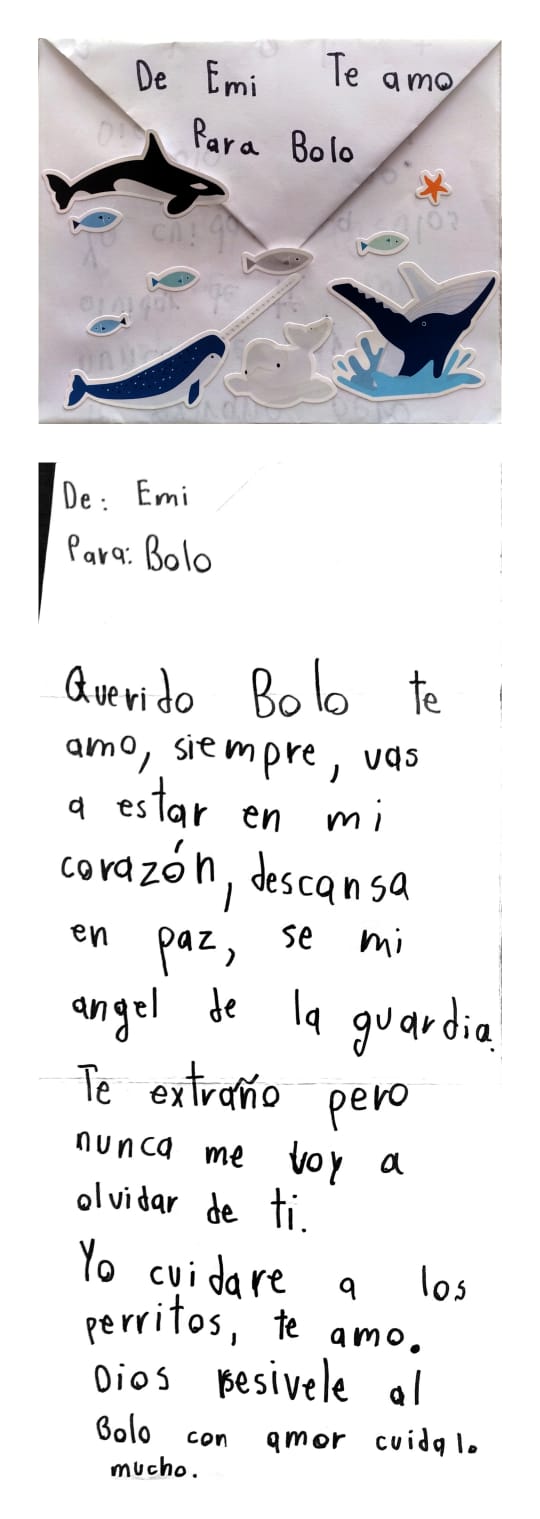 De Emi Te amo
Para Bolo
De: Emi
Para: Bolo
Querido Bolo te
amo, siempre, vas
a estar en mi
corazón, descansa
en paz, se mi
angel de la guardia.
Te extraño pero
nunca me voy a
olvidar de ti.
Yo cuidare a los
perritos, te amo.
Dios resivele al
Bolo con amor cuidalo
mucho.